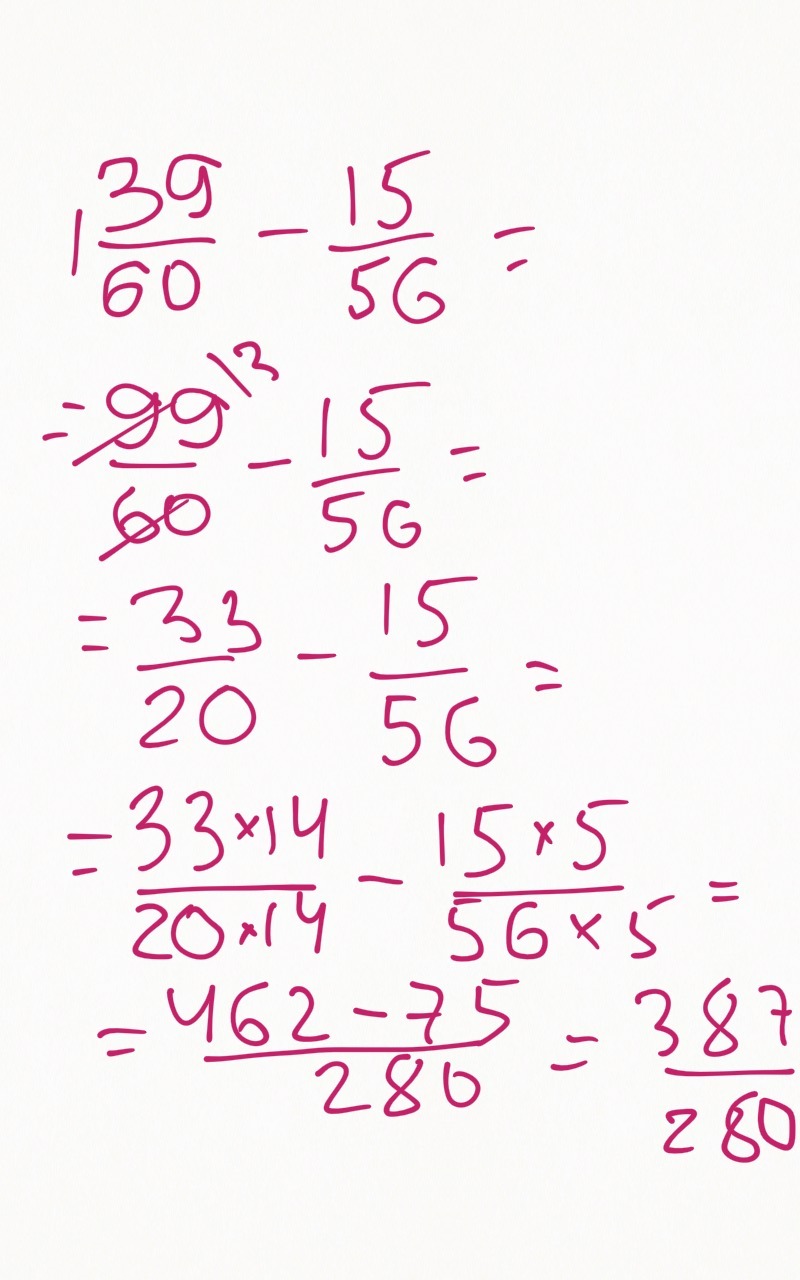 1 39/60 - 15/56 =
= 99/60 \3 - 15/56 =
= 33/20 - 15/56 =
= 33×14/20×14 - 15×5/56×5 =
= 462-75/280 = 387/280